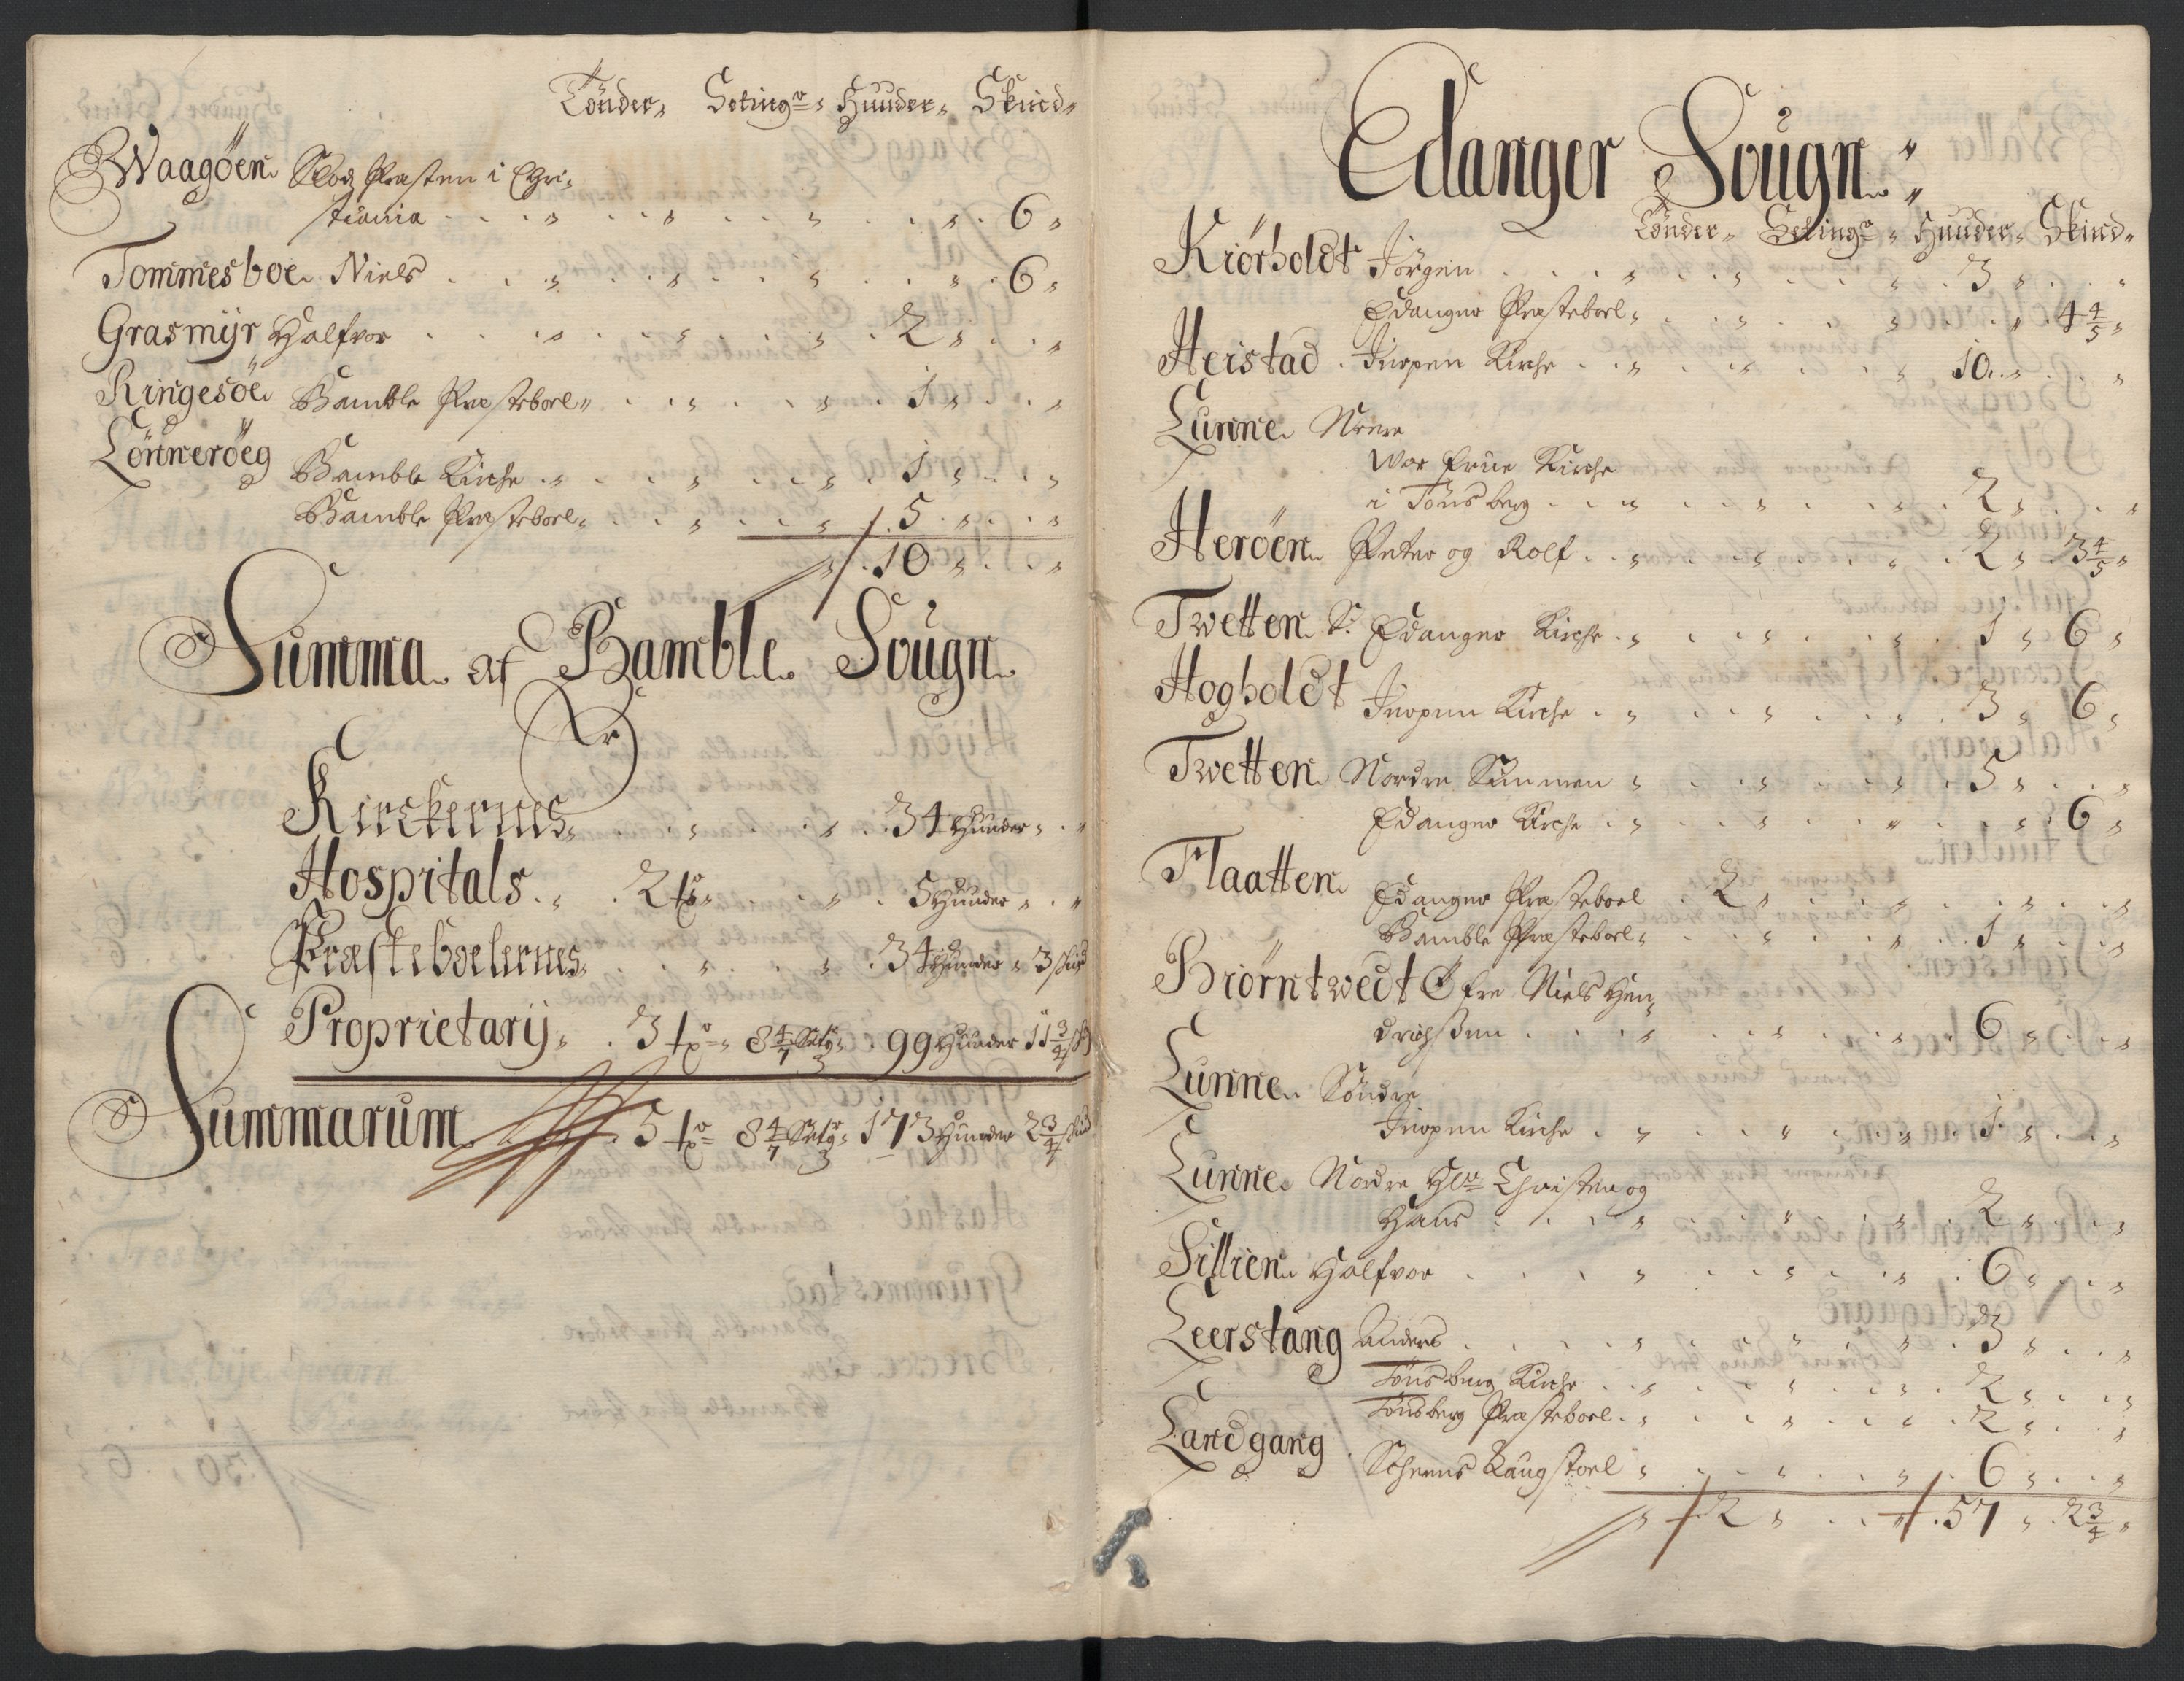 Tönder„ Setingr„ Huuder„ Skind„
Waagöen Slodz Præsten i Chri-
stiania . . „ . . „ . . „ . . „ . 6 „
Tommesboe Niels . . „ . . „ . . „ . . „ . 6 „
Grasmÿr Halfvor . . „ . . „ . . „ . 2 „ . . „
Ringesöe Bamble Præsteboel „ . . „ . . „ . 1 „ . . „
Lönneröeg Bamble Kirche . „ . . „ . . „ . 1 „ . . „
Bamble Præsteboel „ . . „ . . „ . 5 . „ . . „
„ . 10 „ . . „
Summa af Bamble Sougn
Kirckernes „ . . „ . . „ . 34 Huuder „ . „
Hospitals . „ . 2 tr „ . . „ . 5 Huuder „ . „
Præsteboelernes „ . . „ . . „ . 34 Huuder „ 3 skind
Proprietarij „ . 3 tr „ 8 4/7 Setg „ . 99 Huuder 11 3/4 sk
Summarum . 5 tr 8 4/7 Setgr „ 173 Huuder 2 3/4 skind
Edanger Sougn „
Tönder „ Setingr „ Huuder „ Skind „
Kiörholdt Jörgen . . „ . . „ . . „ . 3 „ . . „
Edanger Præsteboel „ . . „ . . „ . . „ . 4 4/5 „
Heistad . Kirche . . „ . . „ . . „ 10 . „ . . „
Lunne Nerre
Wor Frue Kirche
i Tönsberg . . „ . . „ . . „ . 2 „ . . „
Heröen Peter og Rolf . . „ . . „ . . „ . 2 „ 3 4/5 „
Twetten S: Edanger Kirche . „ . . „ . . „ . 1 „ 6 „
Hogholdt Kirche . „ . . „ . . „ . 3 „ 6 „
Twetten Nordre Simmen „ . . „ . . „ . 5 „ . . „
Edanger Kirche . „ . . „ . . „ . . „ . 6 „
Flaatten Edanger Præsteboel . 2 „ . . „ . . „ . . „
Bamble Præsteboel „ . . „ . . „ . 1 „ . . „
Biörntwedt Öfre Niels Hen-
drichßen . . „ . . „ . . „ . 6 „ . . „
Lunne Söndre
Kirche . „ . . „ . . „ . 1 „ . . „
Lunne Nordre Hr Christen og
Hans . . „ . . „ . . „ . 2 „ . . „
Sillien Halfvor . . „ . . „ . . „ . 6 „ . . „
Leerstang Anders . . „ . . „ . . „ . 3 „ . . „
Tönsberg Kirche . „ . . „ . . „ . 2 „ . . „
Tönsberg Præsteboel . „ . . „ . . „ . 2 „ . . „
Landgang . Scheens Laugstoel „ . . „ . . „ . 6 „ . . „
„ . 2 „ . . „ . 57 „ . 2 3/4 „